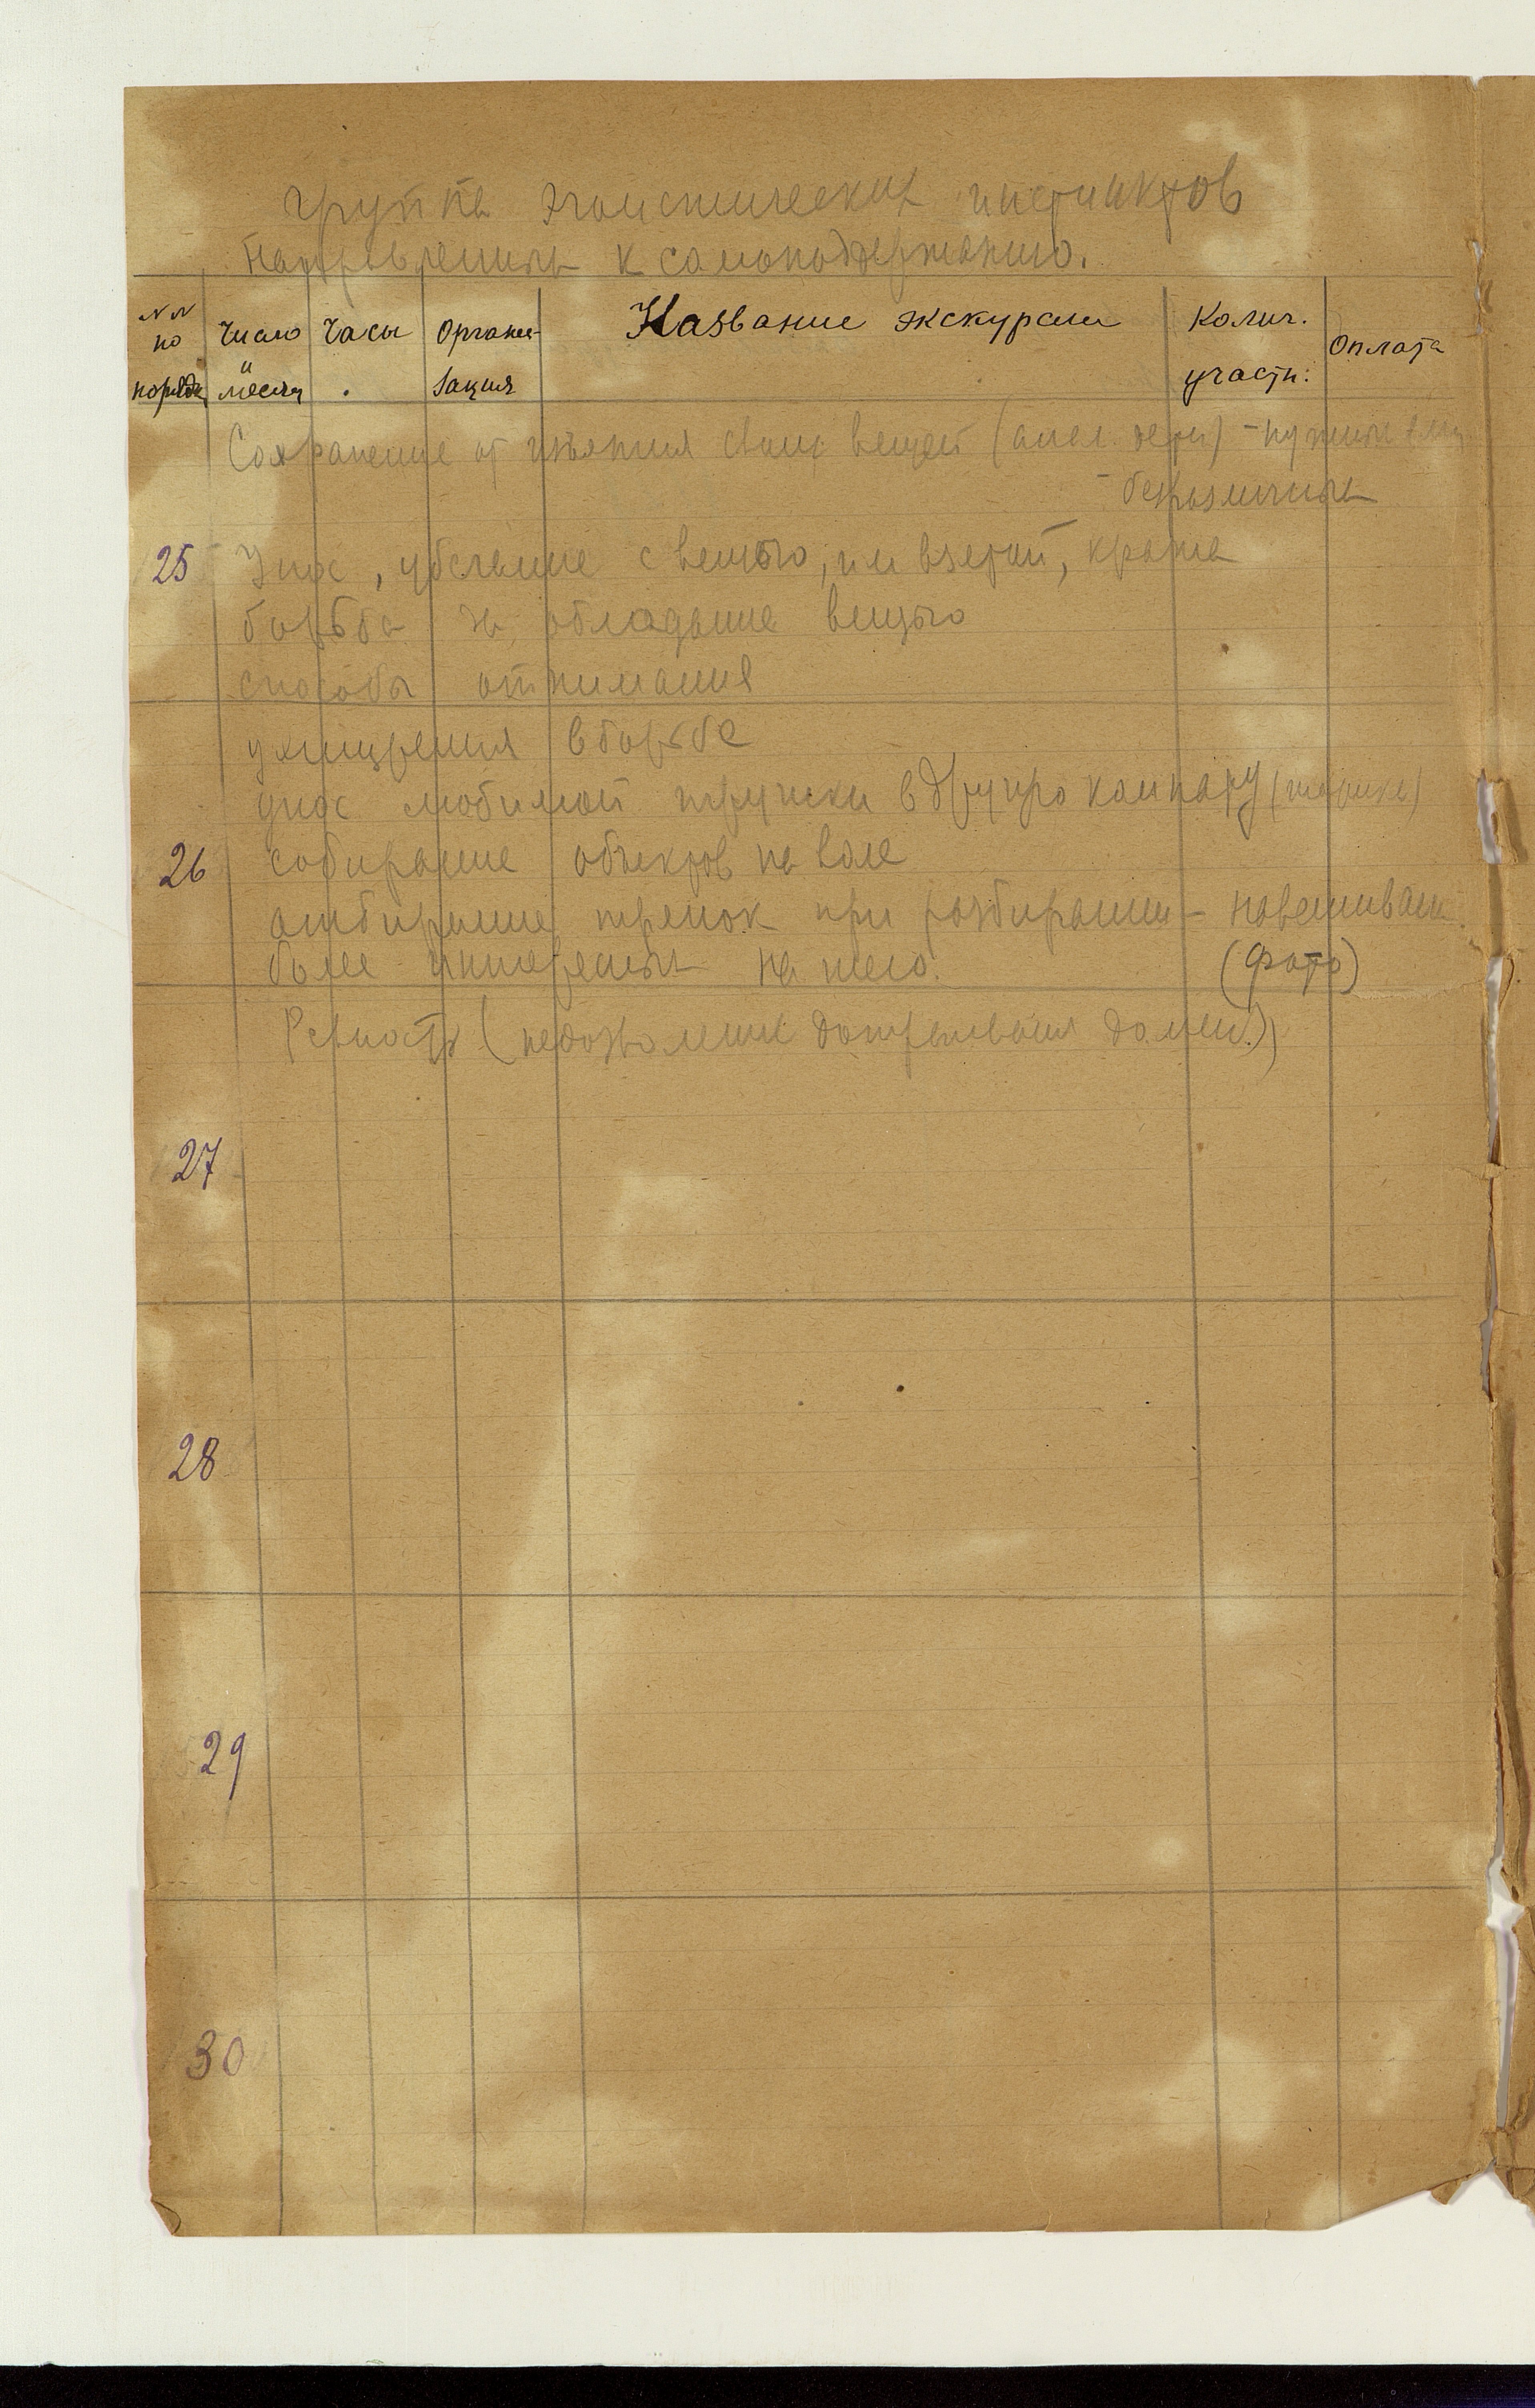 группа эгоистических инстинктов
направленных к самоподдержанию.
№ №
по
порядк
Число
и
месяц
Часы
Органи-
зация
Название экскурсии
Колич.
участн.
Оплата
Сохранение от изъятия своих вещей (апел. дети) - нужных
- безразличных
25
Унос, убегание с вещью, им взятой, кража
борьба за обладание вещью
способы отнимания
ухищрения в борьбе
унос любимой игрушки в другую комнату (шарика)
26
собирание объектов на воле
отбирание тряпок при разбирании - навешивание
более интересных на шею. (фото)
Ревность (недозволение дотрагивания)
27
28
29
30